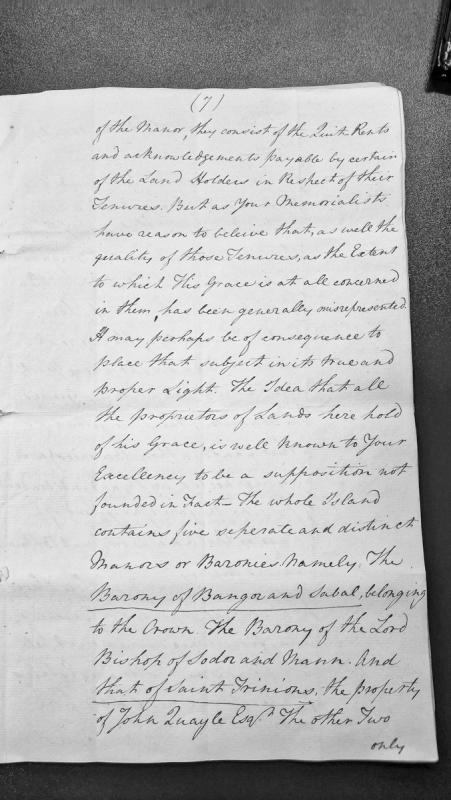 (7)
of the Manor, they consist of the Quit Rents
and acknowledgements payable by certain
of the Land Holders in Respect of their
Tenures. But as Your Memorialists
have reason to beleive that, as well the
quality of those Tenures, as the Extent
to which His Grace is at all concerned
in them, has been generally misrepresented.
It may perhaps be of consequence to
place that subject in its true and
proper Light. The Idea that all
the proprietors of Lands here hold
of his Grace, is well known to Your
Excellency to be a supposition not
founded in Fact_ The whole Island
contains five seperate and distinct
Manors or Baronies Namely, The
Barony of Bangor and Sabal, belonging
to the Crown. The Barony of the Lord
Bishop of Sodor and Mann. And
that of Saint Trinions, the property
of John Quayle Esqr. The other Two
only